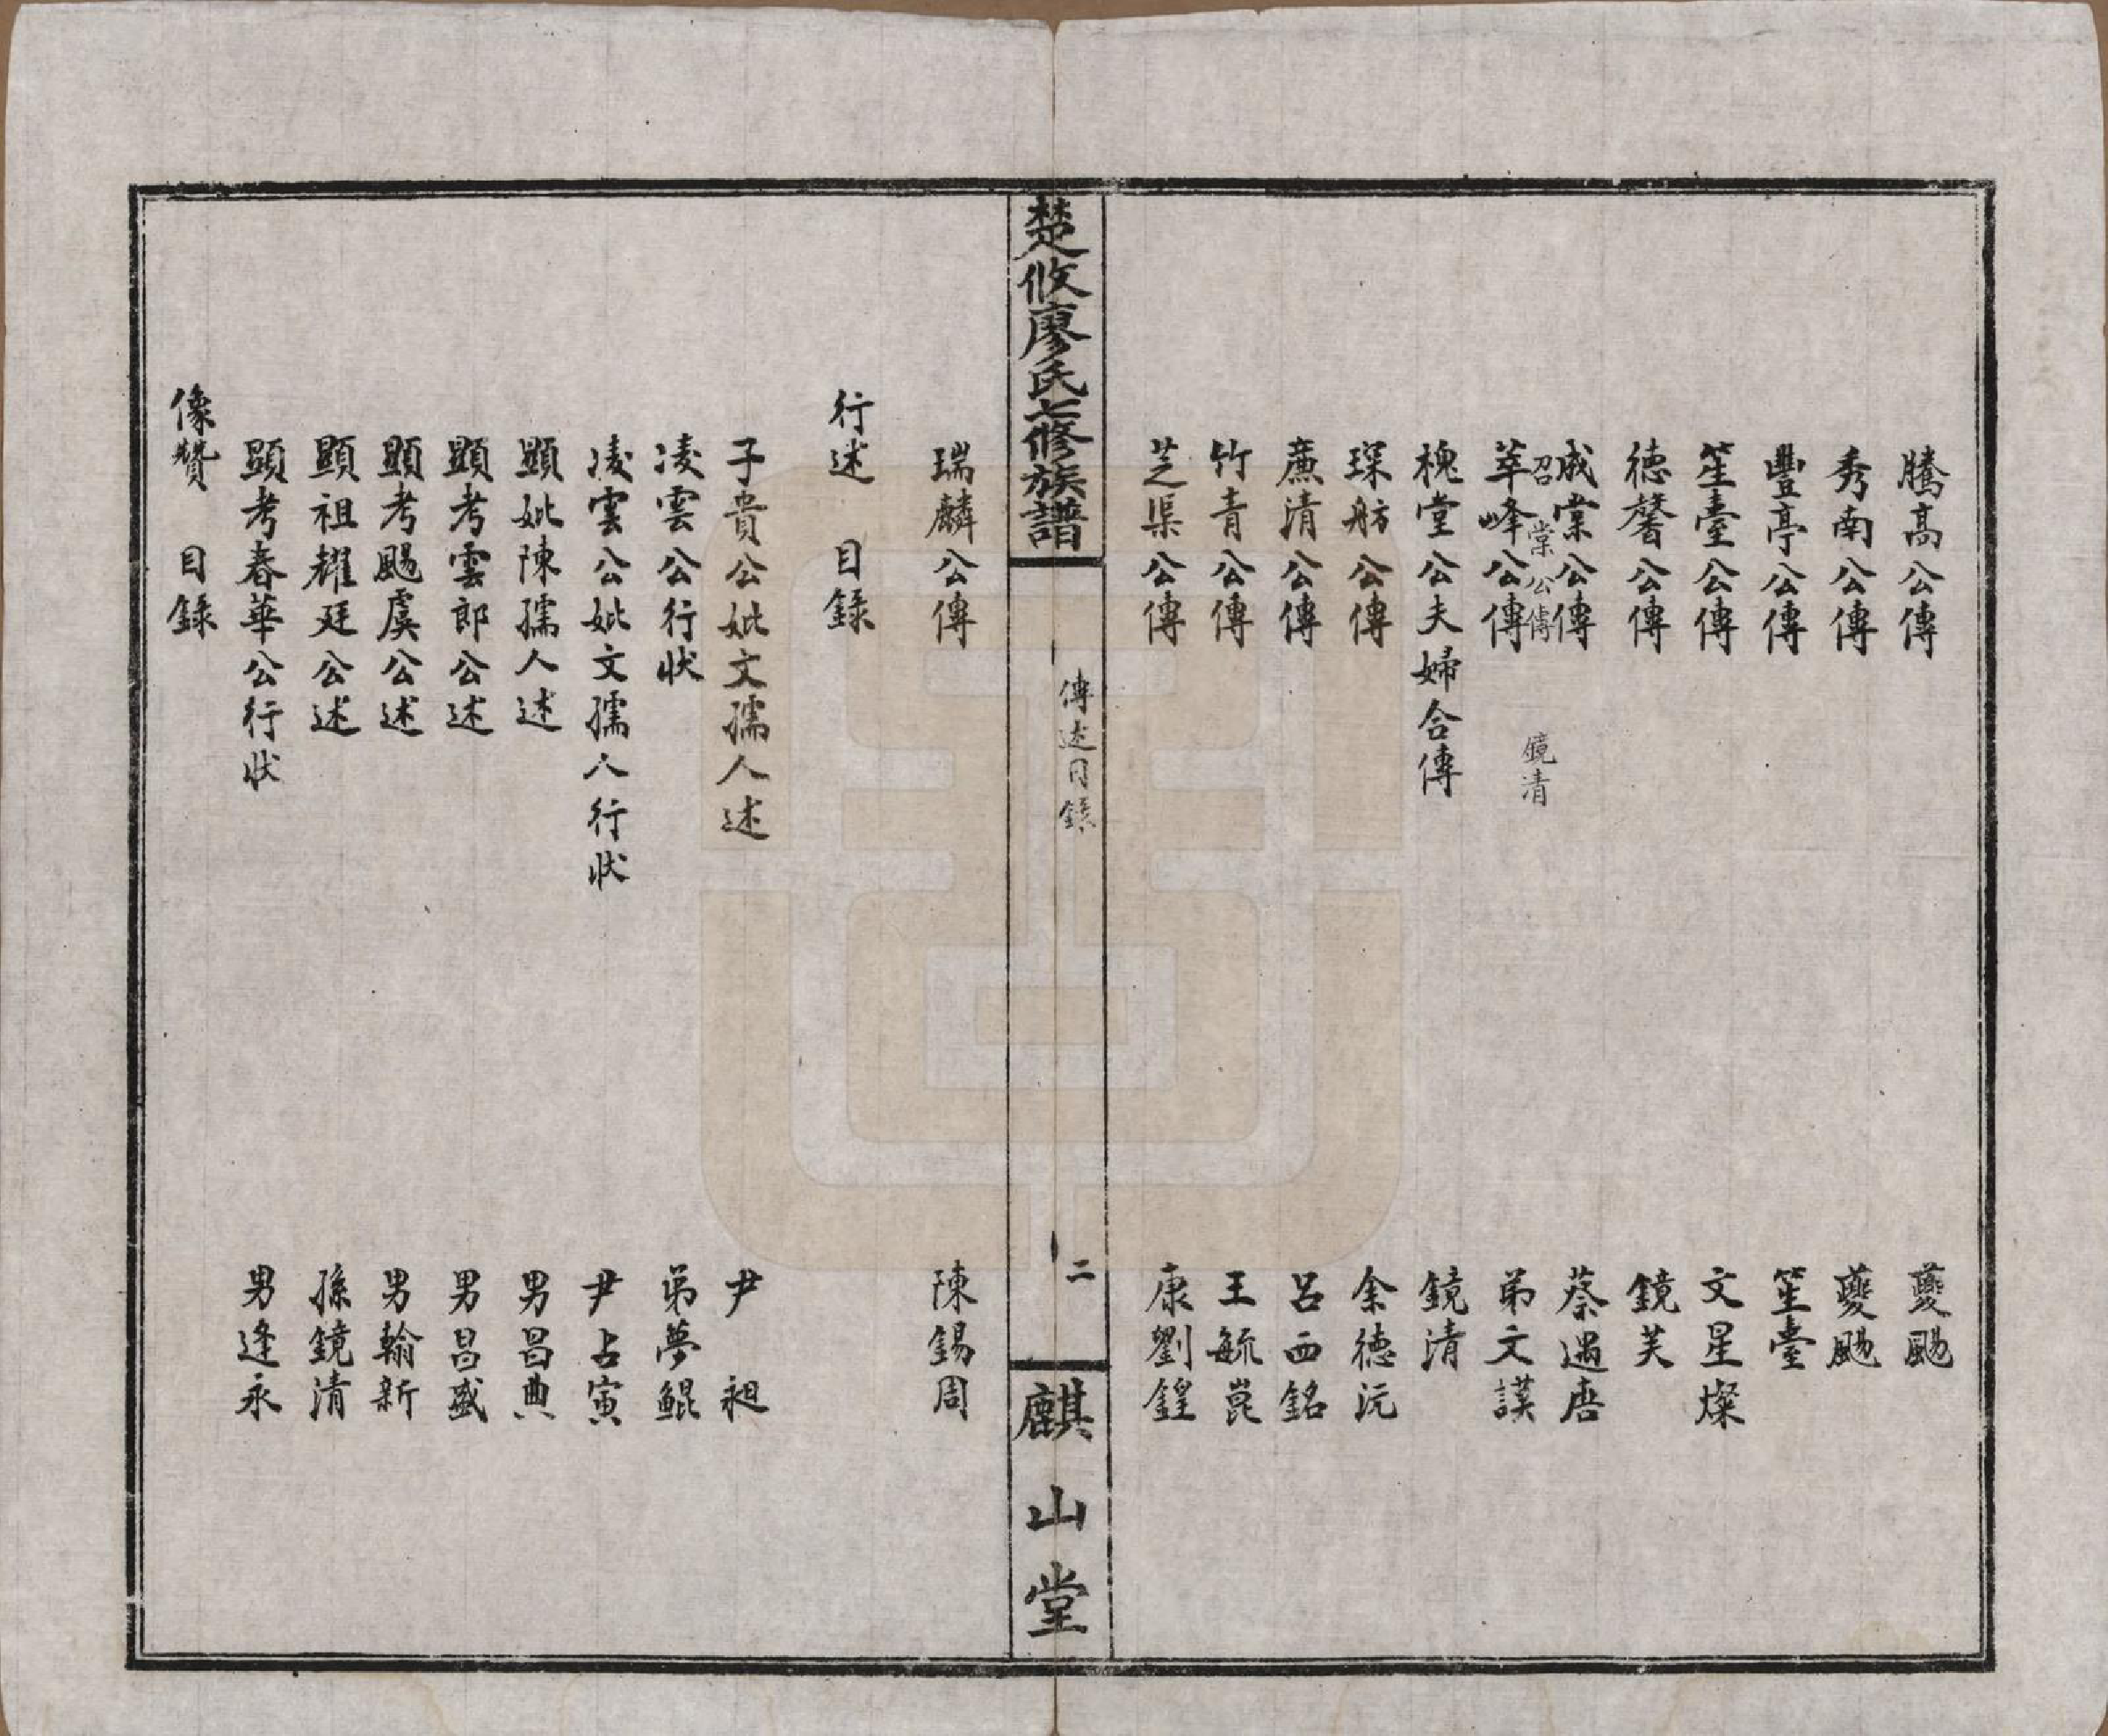 騰高公傳 夔颺
秀南公傳 夔颺
豐亭公傳 笙臺
笙臺公傳 文星燦
德馨公傳 鏡芙
成棠公傳 蔡遇唐
召棠公傳 鏡清
萃峰公傳 弟文謨
槐堂公夫婦合傳 鏡清
琛舫公傳 余德沅
蔗清公傳 呂西銘
竹青公傳 王毓崑
芝渠公傳 康劉鍠
楚攸廖氏七修族譜
傳述目錄
二
麒山堂
瑞麟公傳 陳錫周
行述 目錄
子貴公妣文孺人述 尹昶
凌雲公行狀 弟夢鯤
凌雲公妣文孺人行狀 尹占寅
顯妣陳孺人述 男昌典
顯考雲郎公述 男昌盛
顯考颺虞公述 男翰新
顯祖耀廷公述 孫鏡清
顯考春華公行狀 男逢永
像贊 目錄